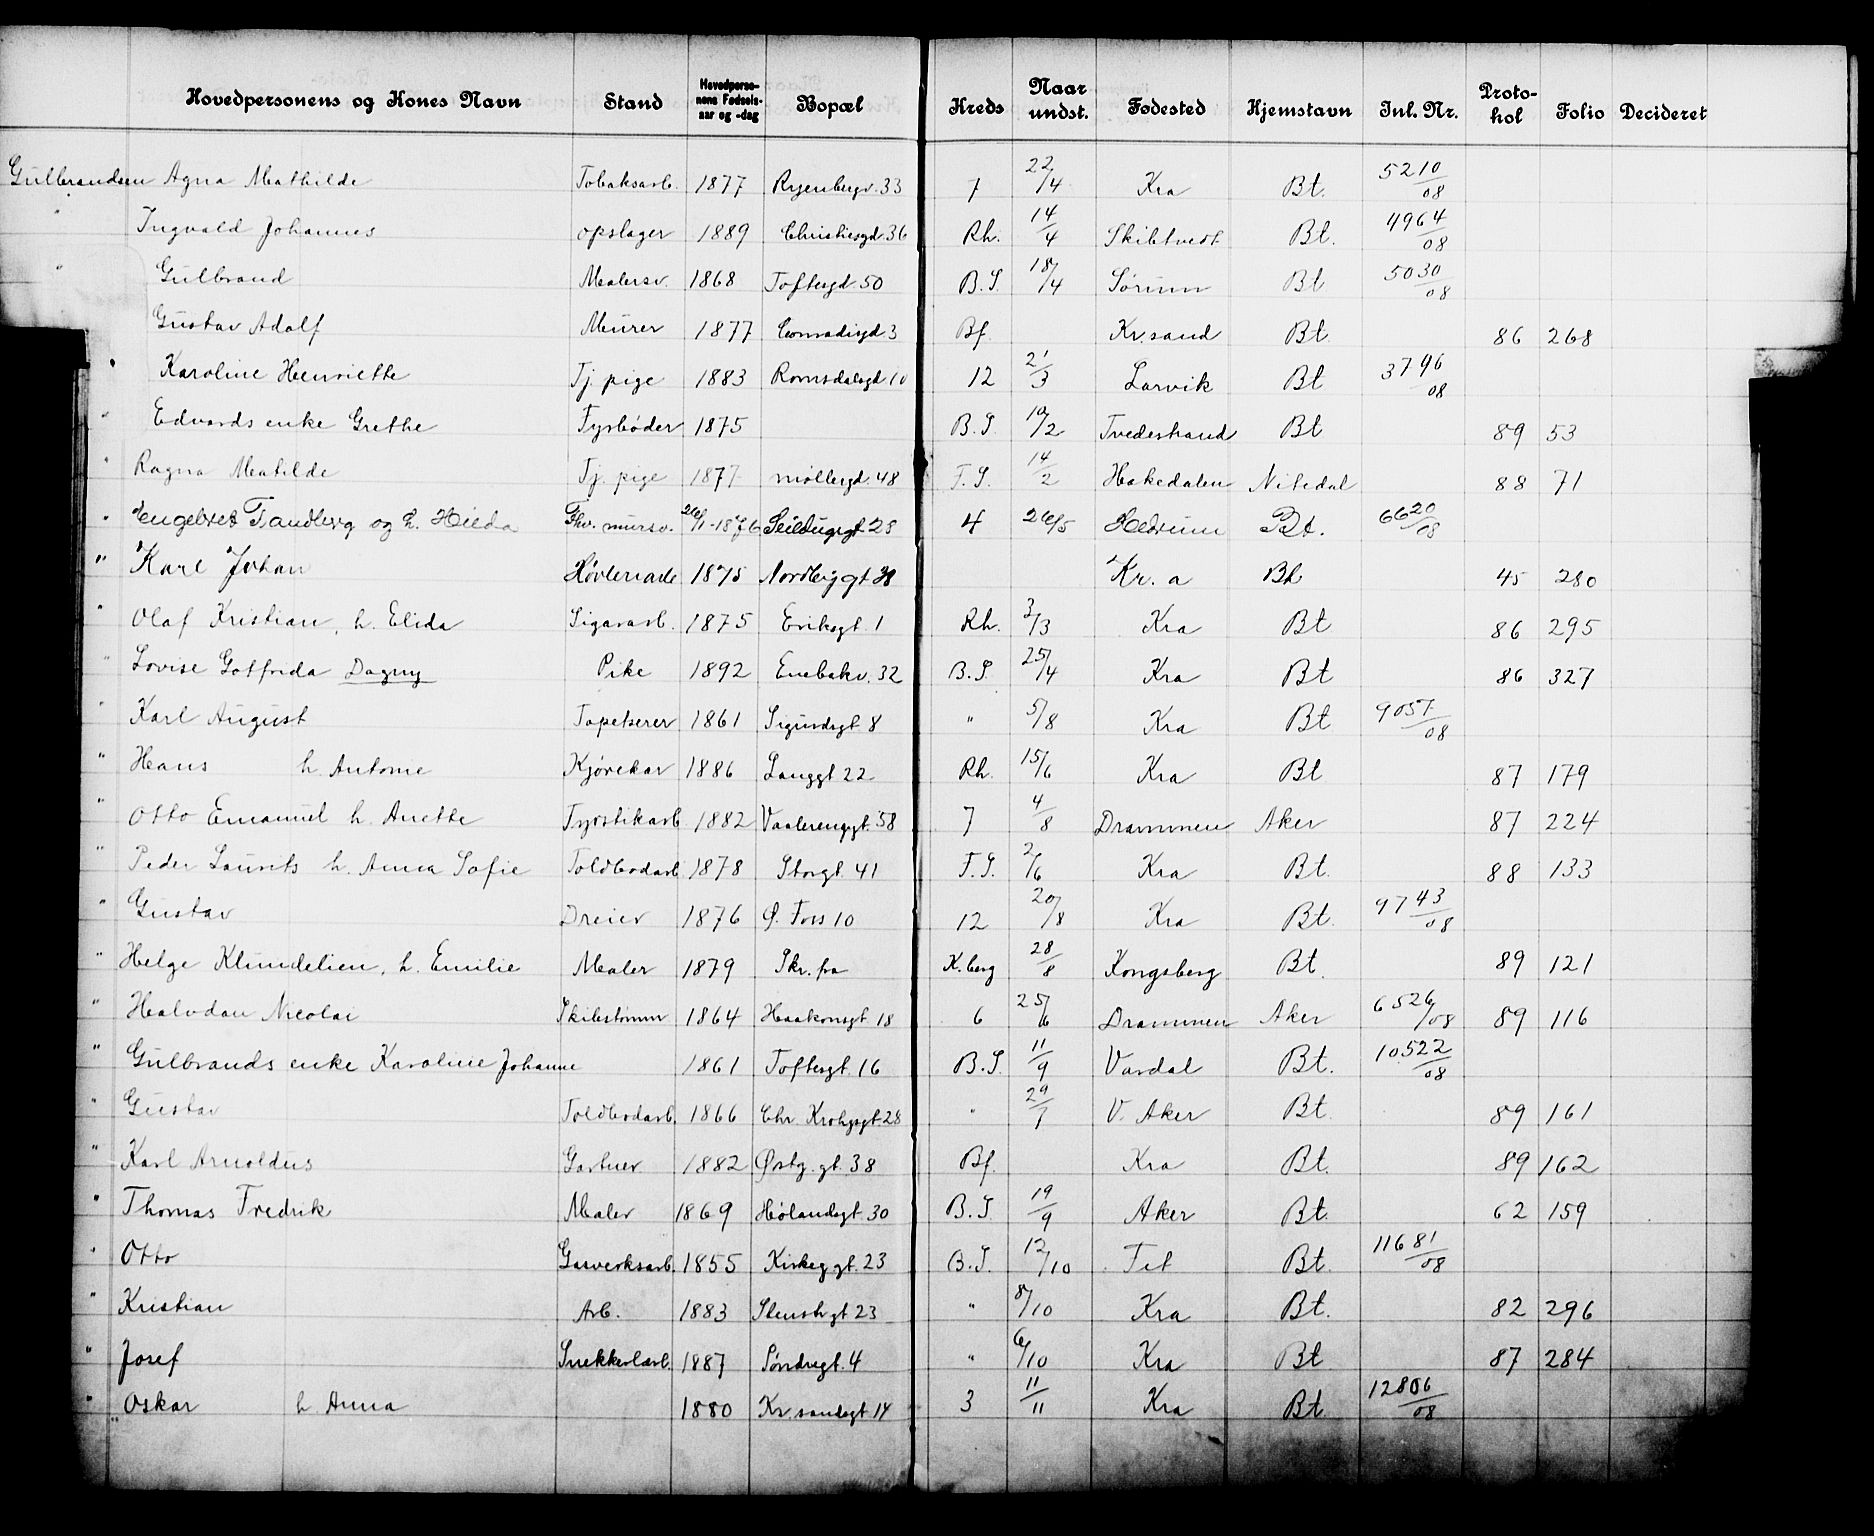 Hovedpersonens og Kones Navn Stand Hovedperso-nens Fødsels-aar og -dag Bopæl Kreds Naar undst. Fødested Hjemstavn Inl. Nr. Proto-hol Folio Decideret
Gulbrandsen Agna Mathilde Tobaksarb. 1877 Ryenbergv. 33 7 22/4 Kra Bt. 5210/08
" Ingvald Johannes opslager 1889 Christiesgd 36 Rh. 14/4 Skibtvedt Bt. 4964/08
" Gulbrand Malersv. 1868 Toftesgd 50 B.S. 18/4 Sørum Bt 5030/08
Gustav Adolf Murer 1877 Conradisgd 3 Bf. Kr.sand Bt. 86 268
" Karoline Henriette Tj. pige 1883 Romsdalsgd 10 12 21/3 Larvik Bt 3796/08
" Edvards enke Grethe Fyrbøder 1875 B.S. 10/2 Tvedestrand Bt 89 53
" Ragna Matilde Tj. pige 1877 møllergd. 48 F.S. 14/2 Hakedalen Nitedal 88 71
" Engebret Tandberg og h. Hilda Fhv. mursv. 26/1-1876 Seildugsgt 28 4 26/5 Hedrum Bt. 6620/08
" Karl Johan Høvleriarb 1875 Nordbygt 38 Kr.a Bt 45 280
" Olaf Kristian, h. Elida Sigararb. 1875 Eriksgt. 1 Rh. 3/3 Kra Bt 86 295
" Lovise Gotfrida Dagny Pike 1892 Enebakv. 32 B.S. 25/4 Kra Bt 86 327
" Karl August Tapetserer 1861 Sigurdsgt. 8 " 5/8 Kra Bt 9057/08
" Hans h. Antonie Kjørekar 1886 Langgt 22 Rh. 15/6 Kra Bt 87 179
" Otto Emanuel h. Anette Fyrstikarb 1882 Vaalerenggt. 58 7 4/8 Drammen Aker 87 224
" Peder Laurits h. Anna Sofie Toldbodarb. 1878 Storgt. 41 F.S. 2/6 Kra Bt. 88 133
" Gustav Dreier 1876 Ø. Foss 10 12 20/8 Kra Bt. 9743/08
" Helge Klundelien, h. Emilie Maler 1879 Skr. fra K.berg 28/8 Kongsberg Bt. 89 121
" Halvdan Nicolai Skibstømm 1864 Haakonsgt 18 6 25/6 Drammen Aker 6526/08 89 116
" Gulbrands enke Karoline Johanne 1861 Toftesgt. 16 B.S. 11/9 Vardal Bt. 10522/08
" Gustav Toldbodarb. 1866 Chr. Krohgsgt 28 " 29/7 V. Aker Bt. 89 161
" Karl Arnoldus Gartner 1882 Østg. gt. 38 Bf. Kra Bt. 89 162
" Thomas Fredrik Maler 1869 Hølandsgt. 30 B.S. 19/9 Aker Bt. 62 159
" Otto Garverksarb. 1855 Kirkeg gt. 23 B.S. 12/10 Fet Bt. 11681/08
" Kristian Arb. 1883 Stenstr gt 23 " 8/10 Kra Bt. 82 296
" Josef Snekkerlærl. 1887 Søndregt. 4 " 6/10 Kra Bt 87 284
" Oskar h. Anna 1880 Kr.sandsgt 14 3 11/11 Kra Bt 12806/08
"